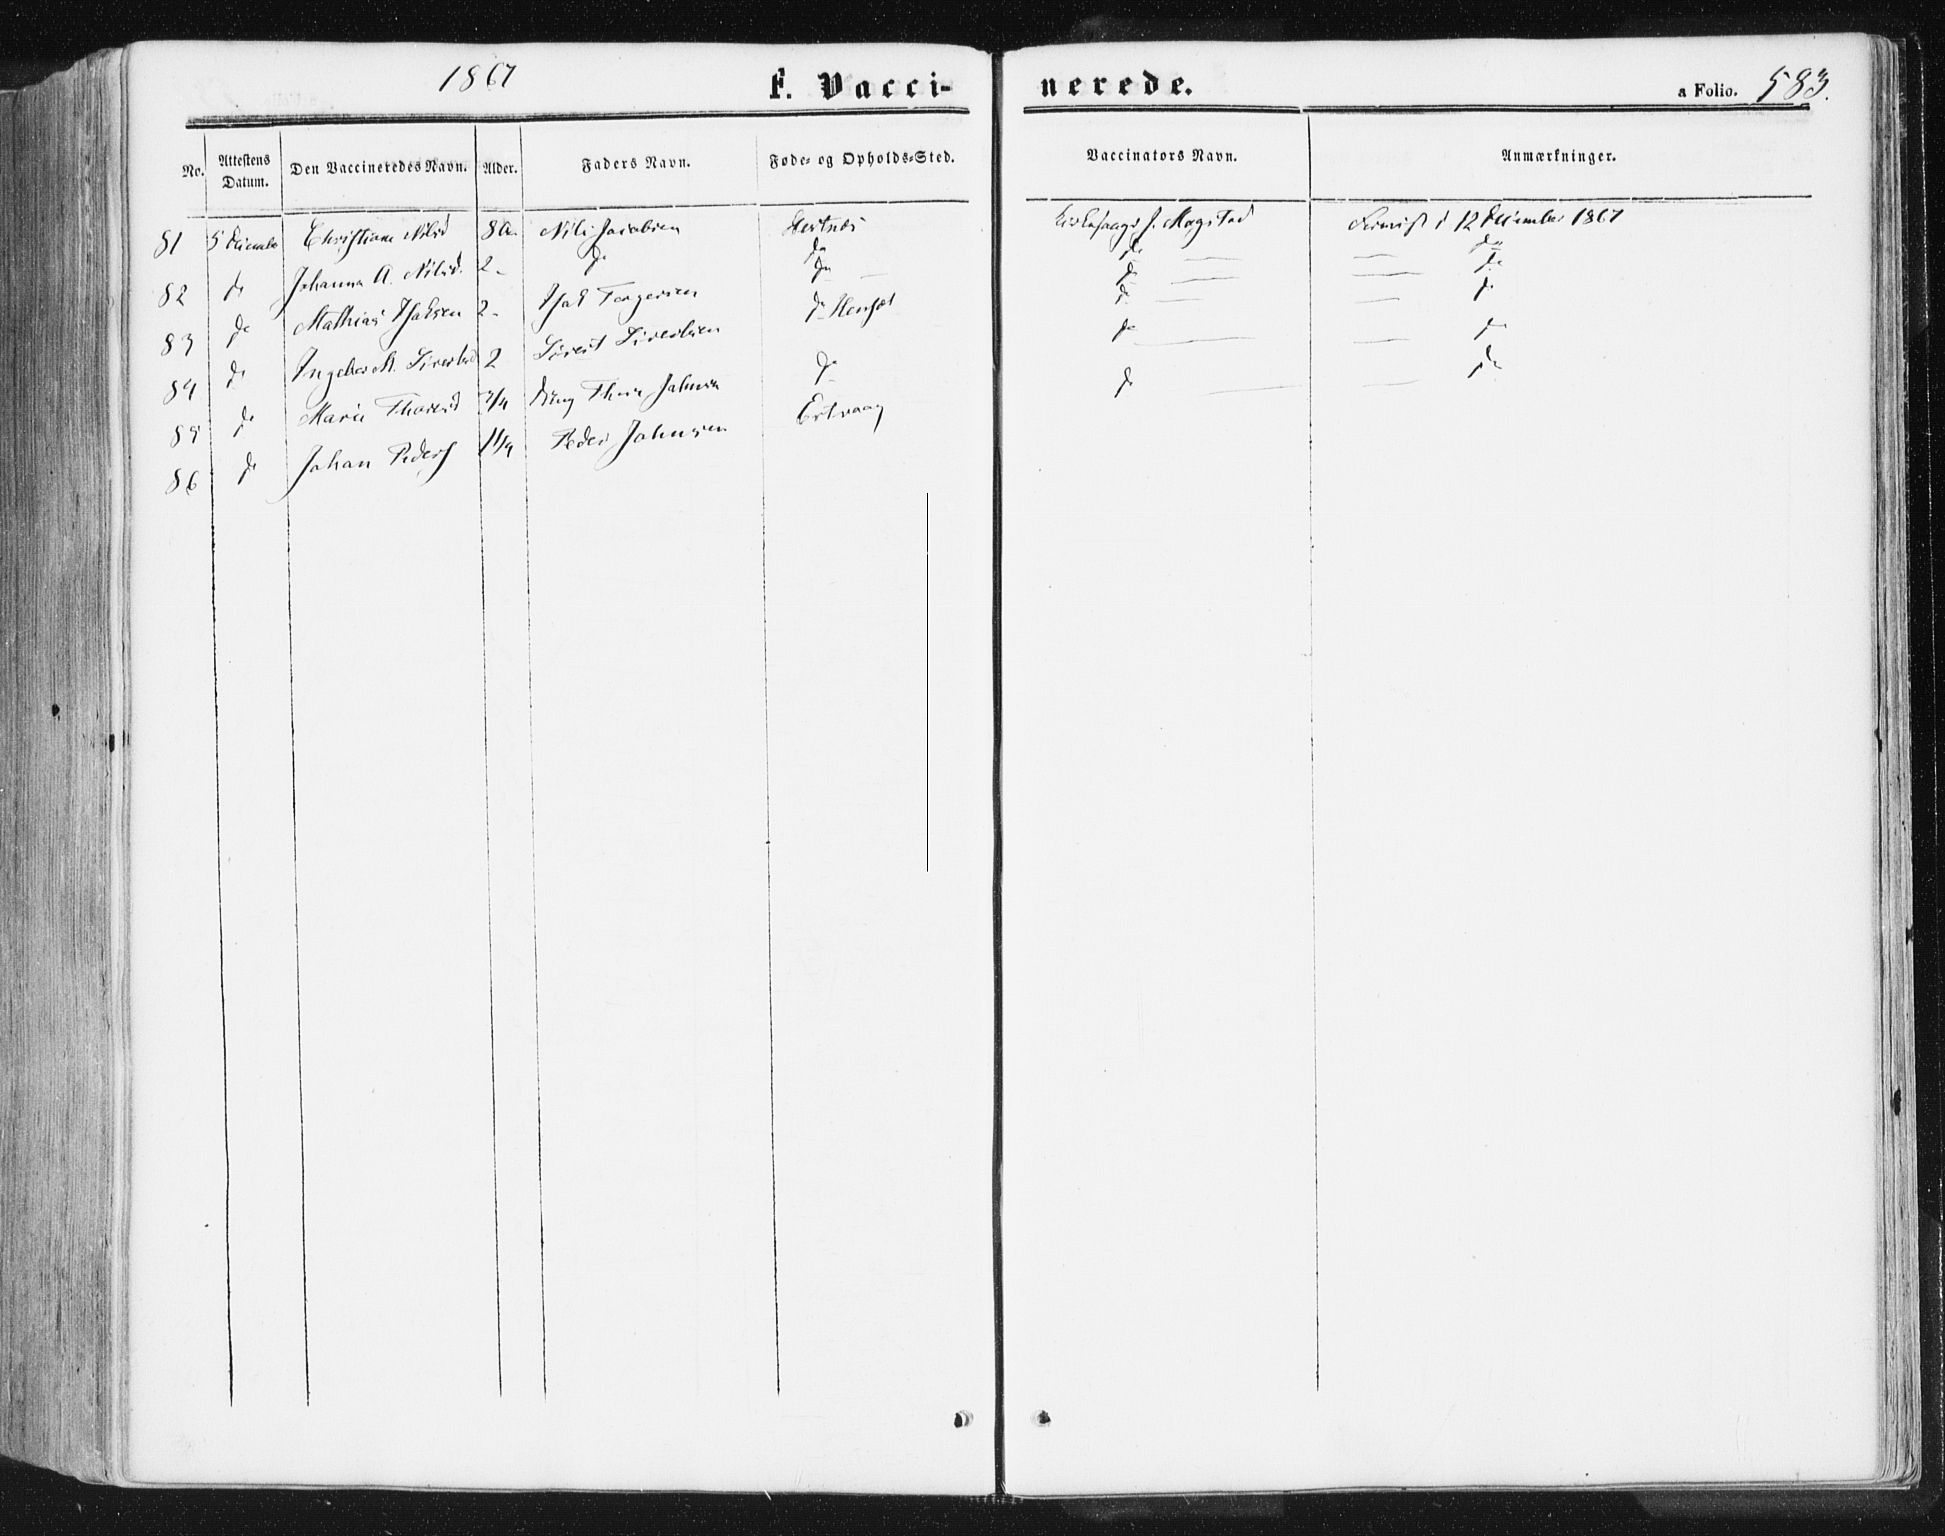 1867 F. Vaccinerede. a Folio. 583.
No. Attestens Datum. Den Vaccineredes Navn. Alder. Faders Navn. Føde- og Opholds-Sted. Vaccinators Navn. Anmærkninger.
81 5 December Christiane Nilsd 8 a. Nils Jacobsen J. Magstad 12 December 1867
82 do Johanna A. Nilsd. 2 - do do do do
83 do Mathias Isaksen 2 - Isak Torgersen do do do
84 do 2 Sivert Sivertsen do do do
85 do Marie Thoresd 3/4 Thore Johnsen do do do
86 do Johan Peders 1 1/4 Peder Johnsen Ertvaag do do